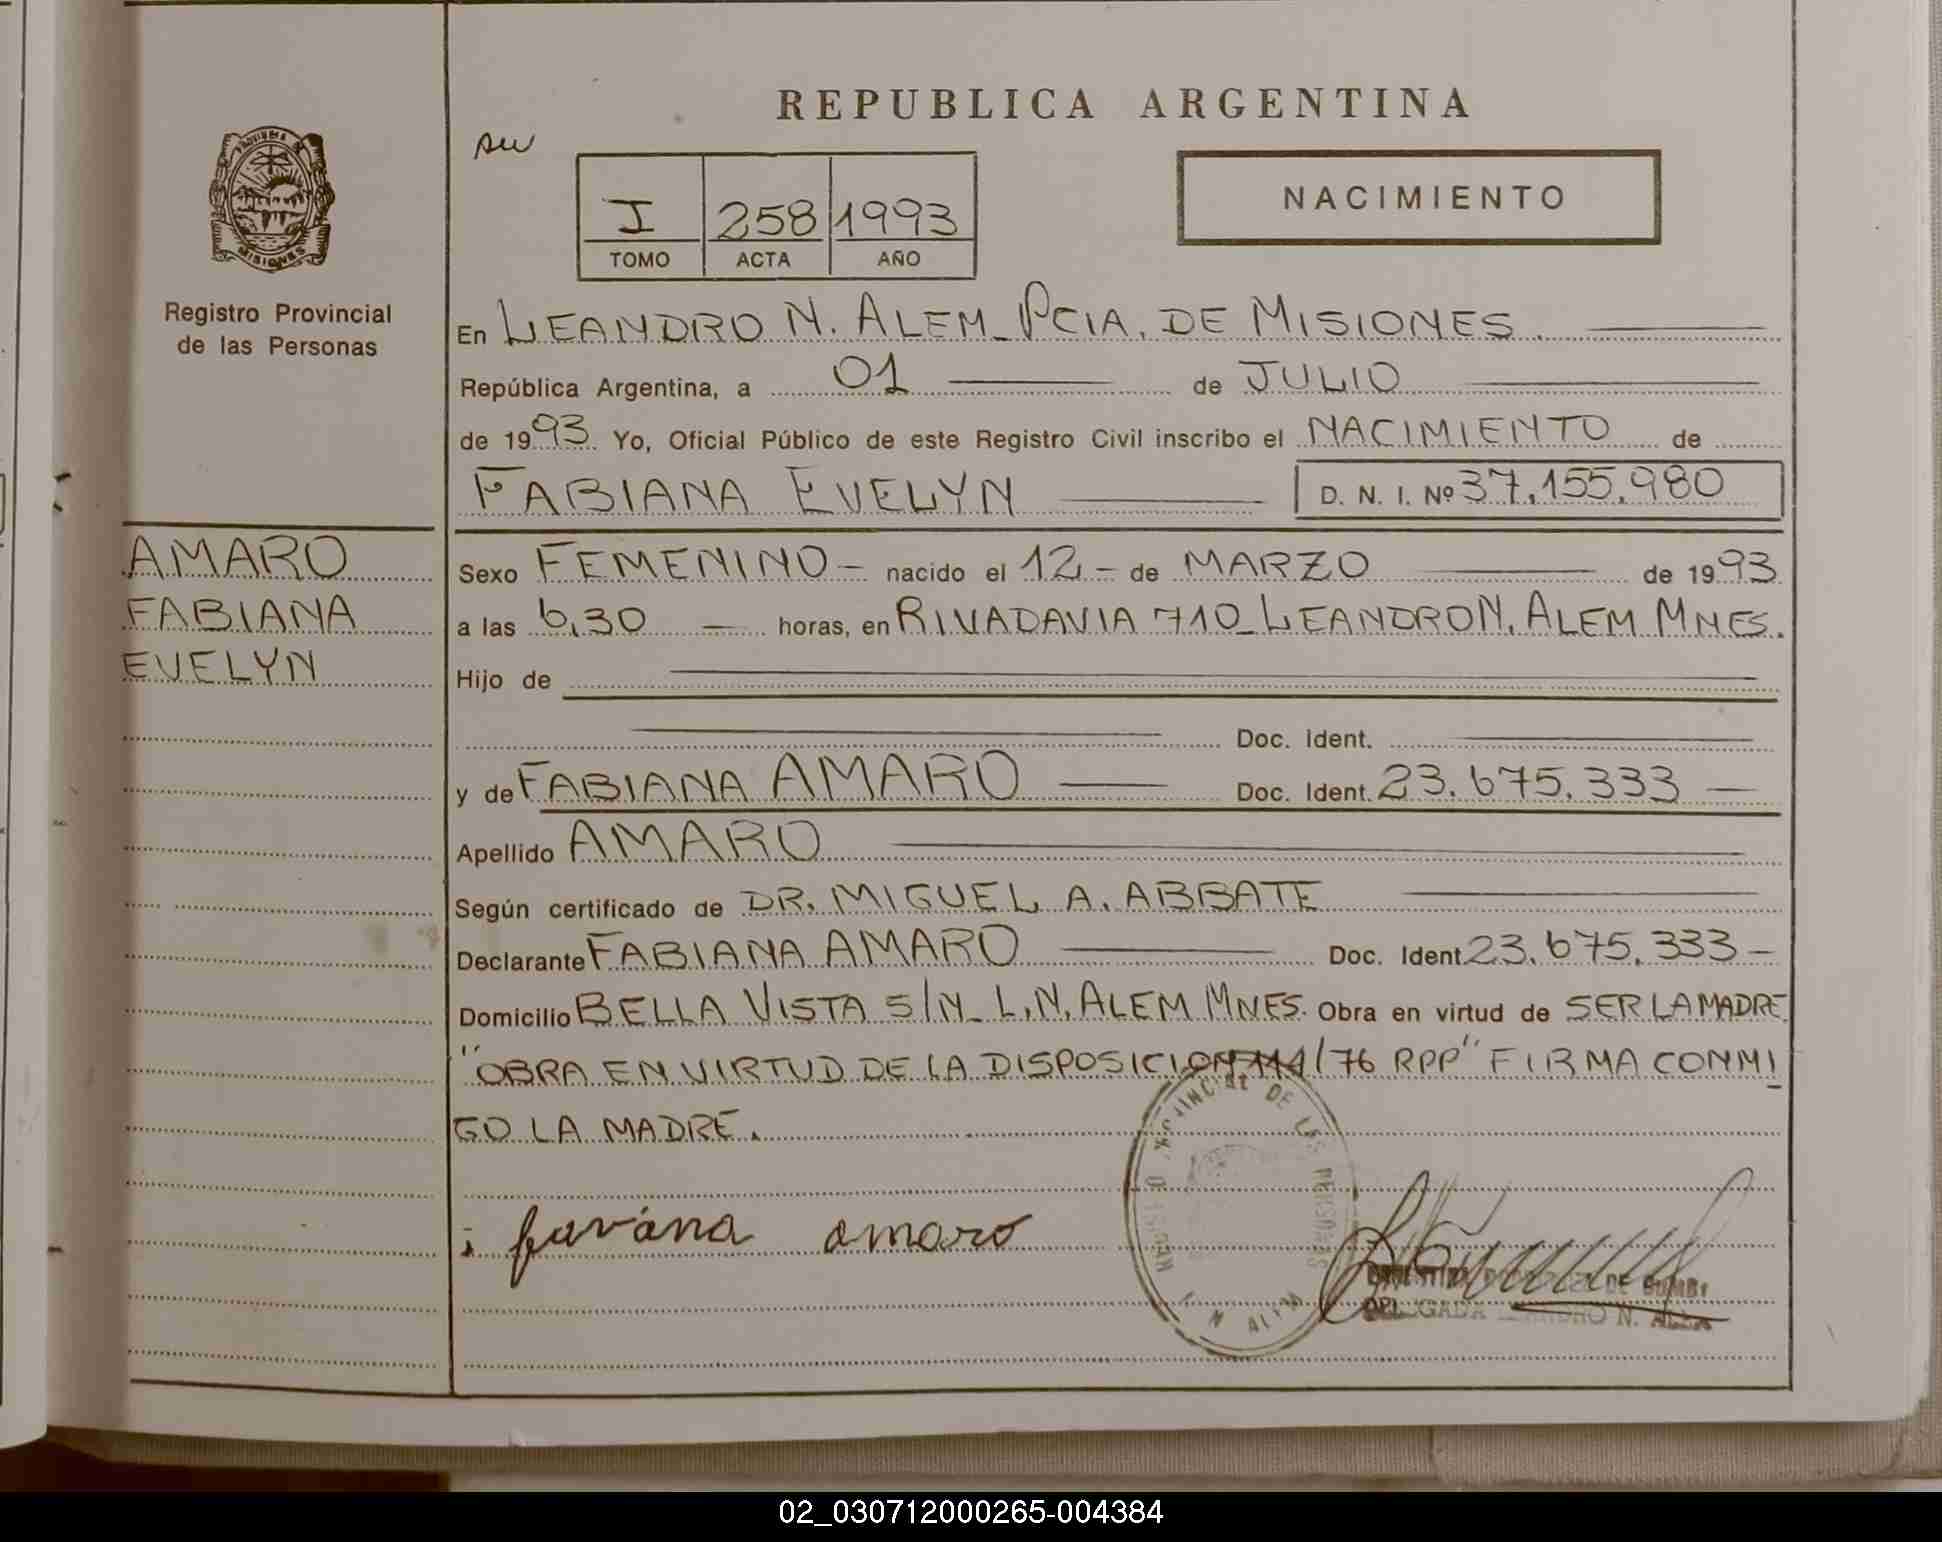 REPUBLICA ARGENTINA
PROVINCIA
MISIONES
Registro Provincial
de las Personas
I 258 1993
TOMO ACTA AÑO
NACIMIENTO
En LEANDRO N. ALEM_PCIA. DE MISIONES.
República Argentina, a 01 de JULIO
de 1993. Yo, Oficial Público de este Registro Civil inscribo el NACIMIENTO de
FABIANA EVELYN D. N. I. Nº 37.155.980
AMARO
FABIANA
EVELYN
Sexo FEMENINO - nacido el 12 - de MARZO de 1993
a las 6,30 horas, en RIVADAVIA 710_LEANDRO N. ALEM MNES.
Hijo de
Doc. Ident.
y de FABIANA AMARO Doc. Ident. 23.675.333
Apellido AMARO
Según certificado de DR. MIGUEL A. ABBATE
Declarante FABIANA AMARO Doc. Ident 23.675.333 -
Domicilio BELLA VISTA S/N_L.N.ALEM MNES. Obra en virtud de SER LA MADRE
"OBRA EN VIRTUD DE LA DISPOSICION /76 RPP" FIRMA CONMI
GO LA MADRE.
favána amaro
DE LAS PERSONAS
N ALEM
N.
02_030712000265-004384